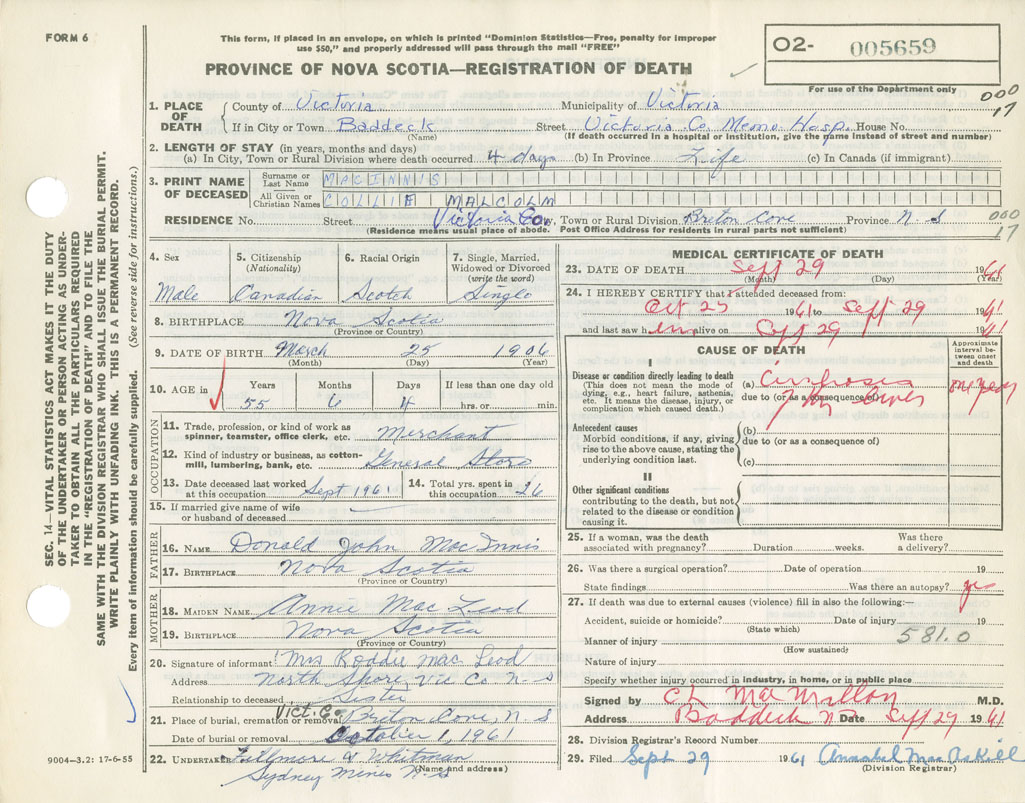 FORM 6
This form, if placed in an envelope, on which is printed "Dominion Statistics—Free, penalty for improper
use $50," and properly addressed will pass through the mail "FREE"
PROVINCE OF NOVA SCOTIA—REGISTRATION OF DEATH
O2- 005659
For use of the Department only
000
17
SEC. 14—VITAL STATISTICS ACT MAKES IT THE DUTY
OF THE UNDERTAKER OR PERSON ACTING AS UNDER-
TAKER TO OBTAIN ALL THE PARTICULARS REQUIRED
IN THE "REGISTRATION OF DEATH" AND TO FILE THE
SAME WITH THE DIVISION REGISTRAR WHO SHALL ISSUE THE BURIAL PERMIT.
WRITE PLAINLY WITH UNFADING INK. THIS IS A PERMANENT RECORD.
Every item of information should be carefully supplied. (See reverse side for instructions.)
1. PLACE OF DEATH County of Victoria Municipality of Victoria
If in City or Town Baddeck Street Victoria Co. Memo. Hosp. House No.
(Name) (If death occurred in a hospital or institution, give the name instead of street and number)
2. LENGTH OF STAY (in years, months and days)
(a) In City, Town or Rural Division where death occurred 4 days (b) In Province Life (c) In Canada (if immigrant)
3. PRINT NAME OF DECEASED Surname or Last Name MACINNIS
All Given or Christian Names COLLIE MALCOLM
RESIDENCE No. Street Victoria Co. City, Town or Rural Division Breton Cove Province N-S
000
17
(Residence means usual place of abode. Post Office Address for residents in rural parts not sufficient)
4. Sex Male
5. Citizenship (Nationality) Canadian
6. Racial Origin Scotch
7. Single, Married, Widowed or Divorced (write the word) Single
8. BIRTHPLACE Nova Scotia
(Province or Country)
9. DATE OF BIRTH March 25 1906
(Month) (Day) (Year)
10. AGE in Years 55 Months 6 Days 4 If less than one day old hrs. or min.
OCCUPATION
11. Trade, profession, or kind of work as spinner, teamster, office clerk, etc. Merchant
12. Kind of industry or business, as cotton-mill, lumbering, bank, etc. General Store
13. Date deceased last worked at this occupation Sept 1961
14. Total yrs. spent in this occupation 26
15. If married give name of wife or husband of deceased
FATHER
16. NAME Donald John Mac Innis
17. BIRTHPLACE Nova Scotia
(Province or Country)
MOTHER
18. MAIDEN NAME Annie Mac Leod
19. BIRTHPLACE Nova Scotia
(Province or Country)
20. Signature of informant Mrs Roddie Mac Leod
Address North Shore, Vic Co N-S
Relationship to deceased Sister
21. Place of burial, cremation or removal Vict. Co. Breton Cove, N-S
Date of burial or removal October 1, 1961
22. UNDERTAKER Fillmore & Whitman
Sydney Mines N-S
(Name and address)
9004—3.2: 17-6-55
MEDICAL CERTIFICATE OF DEATH
23. DATE OF DEATH Sept 29 1961
(Month) (Day) (Year)
24. I HEREBY CERTIFY that I attended deceased from:
Oct 25 1961 to Sept 29 1961
and last saw him alive on Sept 29 1961
CAUSE OF DEATH
Approximate interval between onset and death
I
Disease or condition directly leading to death
(This does not mean the mode of dying, e.g., heart failure, asthenia, etc. It means the disease, injury, or complication which caused death.)
(a) Cirrhosis of the Liver one year
due to (or as a consequence of)
Antecedent causes
Morbid conditions, if any, giving rise to the above cause, stating the underlying condition last.
(b)
due to (or as a consequence of)
(c)
II
Other significant conditions
contributing to the death, but not related to the disease or condition causing it.
25. If a woman, was the death associated with pregnancy? Duration weeks. Was there a delivery?
26. Was there a surgical operation? Date of operation 19
State findings Was there an autopsy? yes
27. If death was due to external causes (violence) fill in also the following:—
Accident, suicide or homicide? Date of injury 19
(State which)
Manner of injury 581.0
(How sustained)
Nature of injury
Specify whether injury occurred in industry, in home, or in public place
Signed by C L MacMillan M.D.
Address Baddeck N Date Sept 29 1961
28. Division Registrar's Record Number
29. Filed Sept 29 1961 Annabel Mac Askill
(Division Registrar)